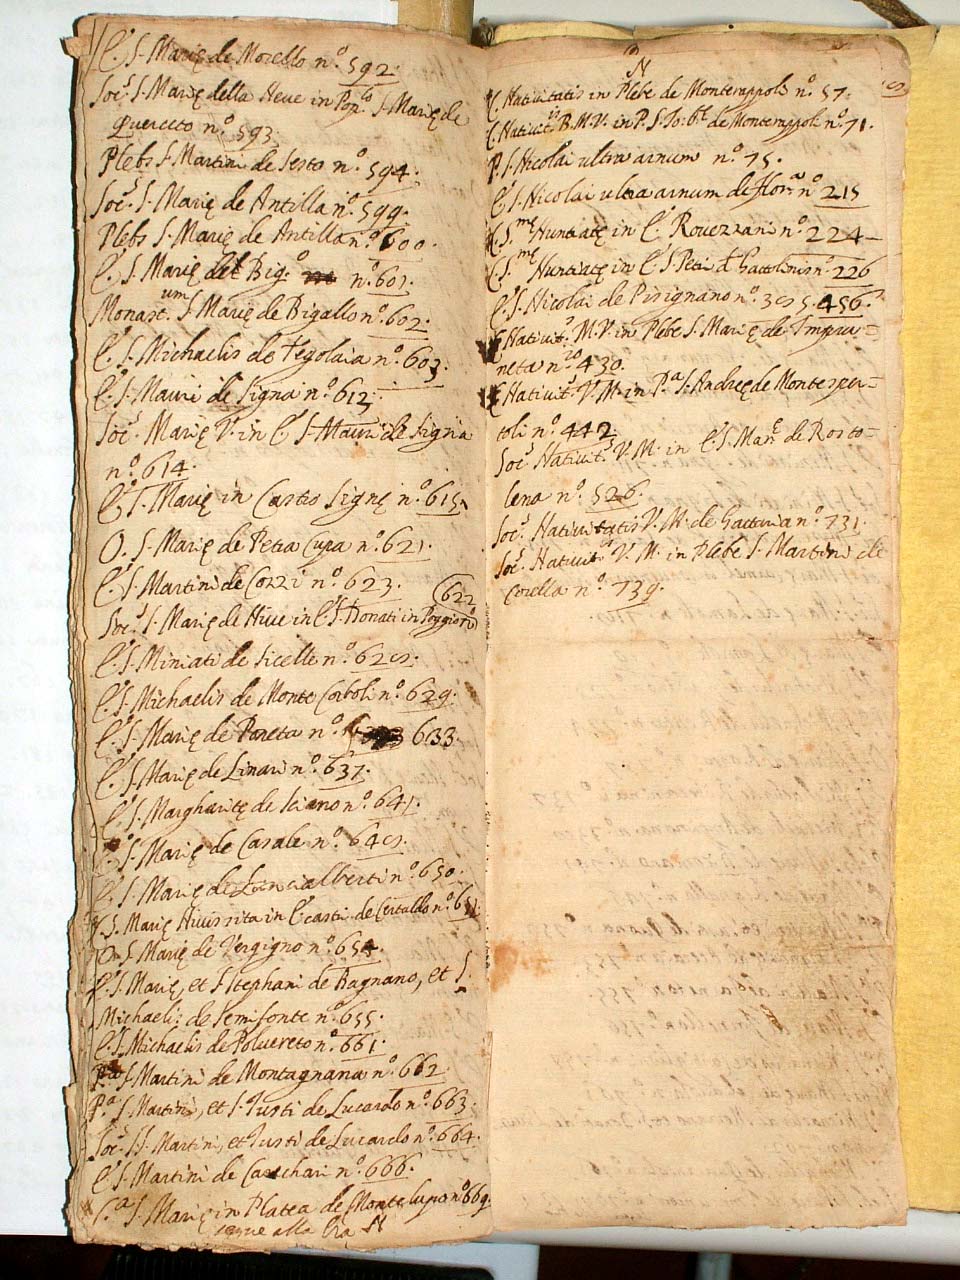 C. S. Marię de Morello n.º 592.
Soc.s S. Marię della Neve in Pop.lo S. Marię de
Querceto n.º 593.
Plebs S. Martini de Sesto n.º 594.
Soc.s S. Marię de Antilla n.º 599.
Plebs S. Marię de Antilla n.º 600.
C. S. Marię del Big.º n.º 601.
Monast.um S. Marię de Bigallo n.º 602.
C. S. Michaelis de Tegolaia n.º 603.
C. S. Mauri de Signa n.º 612.
Soc.s Marię V. in C. S. Mauri de Signa
n.º 614.
C. S. Marię in Castro Signę n.º 615.
O. S. Marię de Petra Cupa n.º 621.
C. S. Martini de Cozzi n.º 623.
Soc.s S. Marię de Nive in C. S. Donati in Poggio n.º 622
C. S. Miniati de Sicelle n.º
C. S. Michaelis de Monte Corboli n.º 629.
C. S. Marię de Paneta n.º 633.
C. S. Marię de Linari n.º 637.
C. S. Margharitę de Sciano n.º 641.
C. S. Marię de Casale n.º
C. S. Marię de Lancialberti n.º 650.
S. Marię in C. Casti de Certaldo n.º
S. Marię de Vergigno n.º 654.
C. S. Marię, et S. Stephani de Bagnano, et S.
Michaelis de Semifonte n.º 655.
C. S. Michaelis de Polvereto n.º 661.
P.a S. Martini de Montagnana n.º 662
P.a S. Martini, et S. Justi de Lucardo n.º 663.
Soc.s SS. Martini, et Justi de Lucardo n.º 664.
C. S. Martini de n.º 666.
S. Marię in Platea de Monte lupo n.º 669.
segue alla Lra N
N
C. Nativitatis in Plebe de Monterappoli n.º 57.
C. Nativit. B. M. V. in P. S. Jo: Bt. de Monterappoli n.º 71.
P. S. Nicolai ultra arnum n.º 75.
C. S. Nicolai ultra arnum de Flor.a n.º 215
C. S.me Nuntiatę in C. Rovezzani n.º 224
C. S.me Nuntiatę in C. S. Petri d. Gattolinis n.º 226
C. S. Nicolai de Pisignano n.º 456.
C. Nativit.s M. V. in Plebe S. Marię de Impru=
neta n.º 430.
C. Nativit.s V. M. in P.a S. Andreę de Montesper=
toli n.º 442.
Soc.s Nativit.s V. M. in C. S. Mar.ę de Rosto=
lena n.º 526.
Soc.s Nativitatis V. M. de Gattaia n.º 731.
Soc.s Nativit.s V. M. in Plebe S. Martini de
Corella n.º 739.